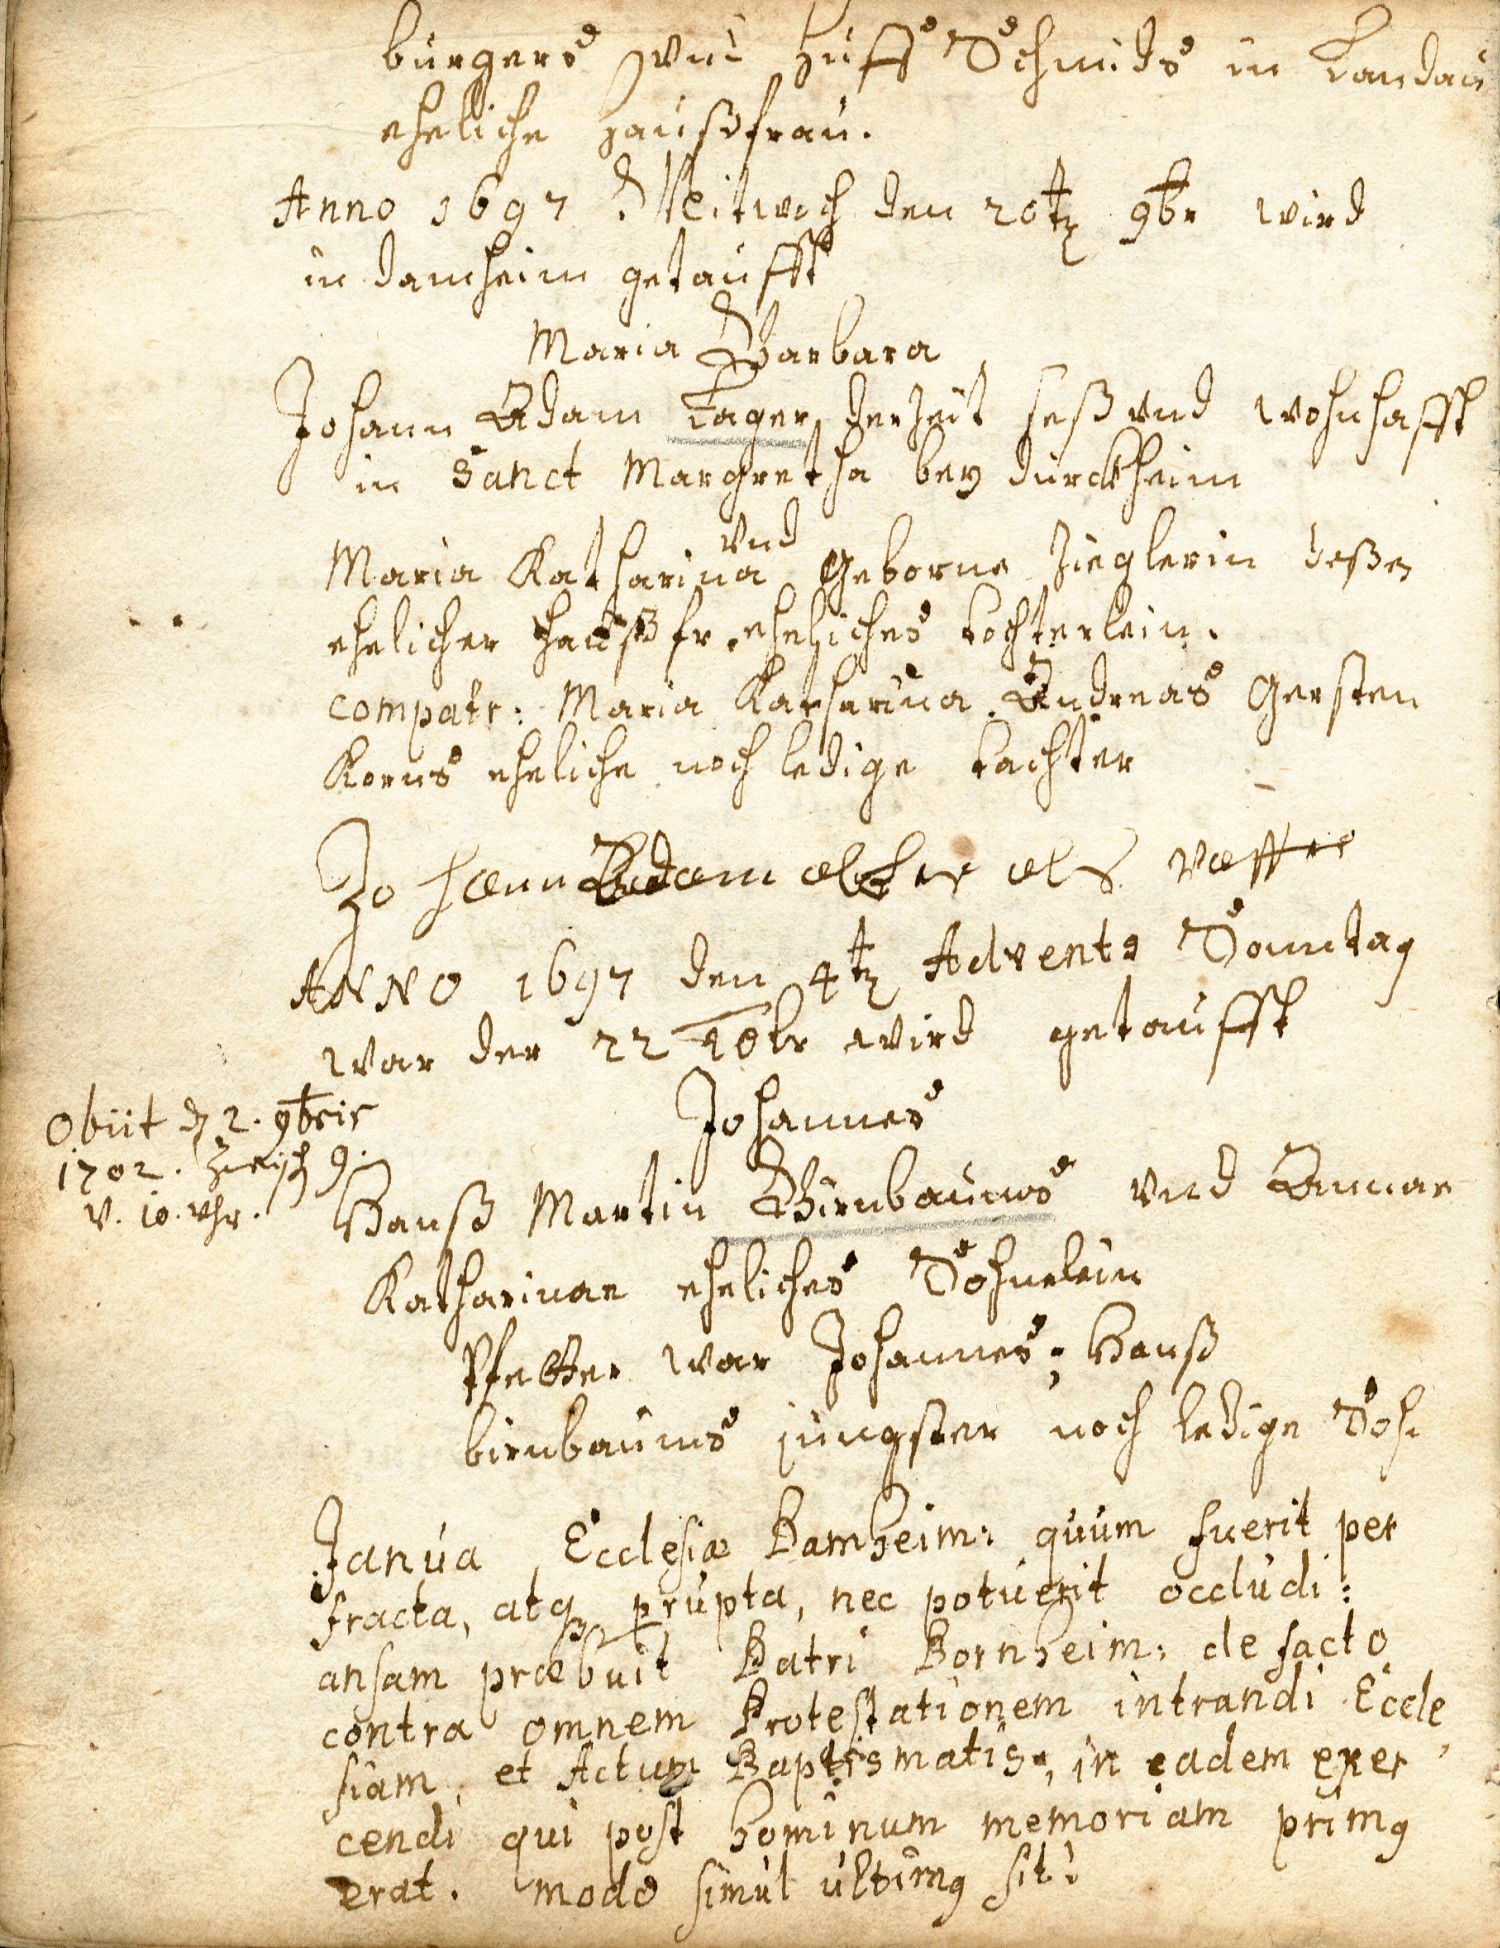 burgers und Huff Schmids in Landau
eheliche Haußfrau.
Anno 1697 Mitwoch den 20t 9br wird
in Damheim getaufft
Maria Barbara
Johann Adam Lager, derzeit seß und wohnhafft
in Sanct Margretha bey Dürckheim
und
Maria Katharina Geborne Zieglerin deßen
ehelicher Haußfr. eheliches tochterlein.
compatr: Maria Katharina Andreas Gersten
Korns eheliche noch ledige tachter
Johann Adam als
ANNO 1697 den 4t Advents Sonntag
war der 22 10br wird getaufft
Obiit d 2. 9bris
1702. zwisch 9.
v. 10. Uhr.
Johannes
Hanß Martin Birnbaums und Annae
Katharinae eheliches Söhnelein
Pfetter war Johannes; Hanß
birnbaums jüngster noch ledige Soh.
Janua Ecclesiæ Damheim: quum fuerit per
fracta, atq prupta, nec potuerit occludi:
ansam præbuit Patri Bornheim: de facto
contra omnem Protestationem intrandi Eccle
siam, et Actum Baptismatis, in eadem exer
cendi qui post hominum memoriam prim9
erat. modo simul ultim9 sit!